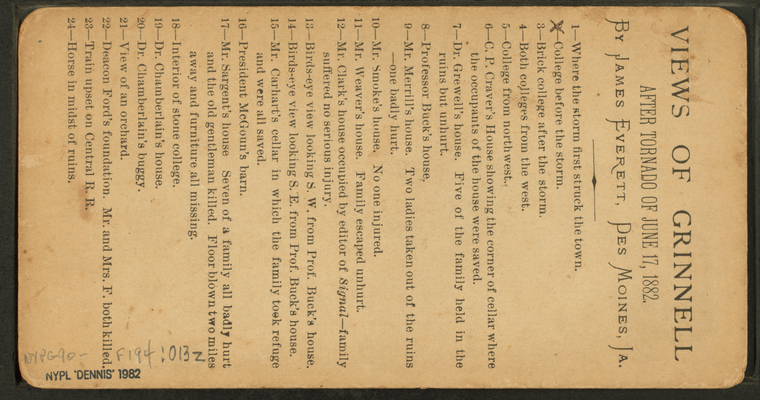 VIEWS OF GRINNELL
AFTER TORNADO OF JUNE 17, 1882.
BY JAMES EVERETT, DES MOINES, IA.
1—Where the storm first struck the town.
2—College before the storm.
3—Brick college after the storm.
4—Both colleges from the west.
5—College from northwest.
6—C. P. Craver's House showing the corner of cellar where
the occupants of the house were saved.
7—Dr. Grewell's house. Five of the family held in the
ruins but unhurt.
8—Professor Buck's house,
9—Mr. Merrill's house. Two ladies taken out of the ruins
—one badly hurt.
10—Mr. Smoke's house. No one injured.
11—Mr. Weaver's house. Family escaped unhurt.
12—Mr. Clark's house occupied by editor of Signal—family
suffered no serious injury.
13—Birds-eye view looking S. W. from Prof. Buck's house,
14—Birds-eye view looking S. E. from Prof. Buck's house.
15—Mr. Carhart's cellar in which the family took refuge
and were all saved.
16—President McGoun's barn.
17—Mr. Sargent's house Seven of a family all badly hurt
and the old gentleman killed. Floor blown two miles
away and furniture all missing.
18—Interior of stone college.
19—Dr. Chamberlain's house.
20—Dr. Chamberlain's buggy.
21—View of an orchard.
22—Deacon Ford's foundation. Mr. and Mrs. F. both killed.
23—Train upset on Central R. R.
24—Horse in midst of ruins.
NYPG90- F194 : 013z
NYPL 'DENNIS' 1982